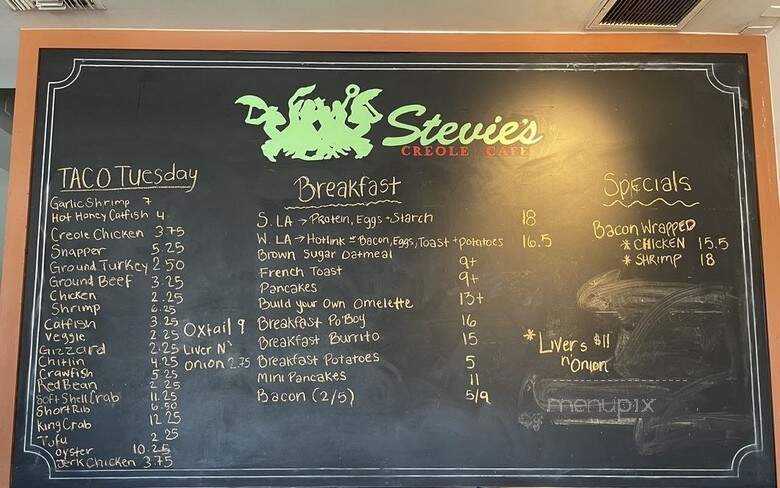 Stevie's
CREOLE CAFE
TACO Tuesday
Garlic Shrimp 7
Hot Honey Catfish 4
Creole Chicken 3.75
Snapper 5.25
Ground Turkey 2.50
Ground Beef 3.25
Chicken 2.25
Shrimp 6.25
Catfish 3.25
Veggie 2.25
Gizzard 2.25
Chitlin 4.25
Crawfish 5.25
Red Bean 2.25
Soft Shell Crab 11.25
Short Rib 6.50
King Crab 12.25
Tofu 2.25
oyster 10.25
Jerk Chicken 3.75
Oxtail 9
Liver N'
onion 2.75
Breakfast
S. LA → Protein, Eggs + Starch 18
W. LA → Hotlink = Bacon, Eggs, Toast + potatoes 16.5
Brown Sugar Oatmeal 9+
French Toast 9+
Pancakes
Build your Own Omelette 13+
Breakfast Po'Boy 16
Breakfast Burrito 15
Breakfast Potatoes 5
Mini Pancakes 11
Bacon (2/5) 5/9
Specials
Bacon Wrapped
* CHICKEN 15.5
* SHRIMP 18
* Livers $11
n' Onion
menupix